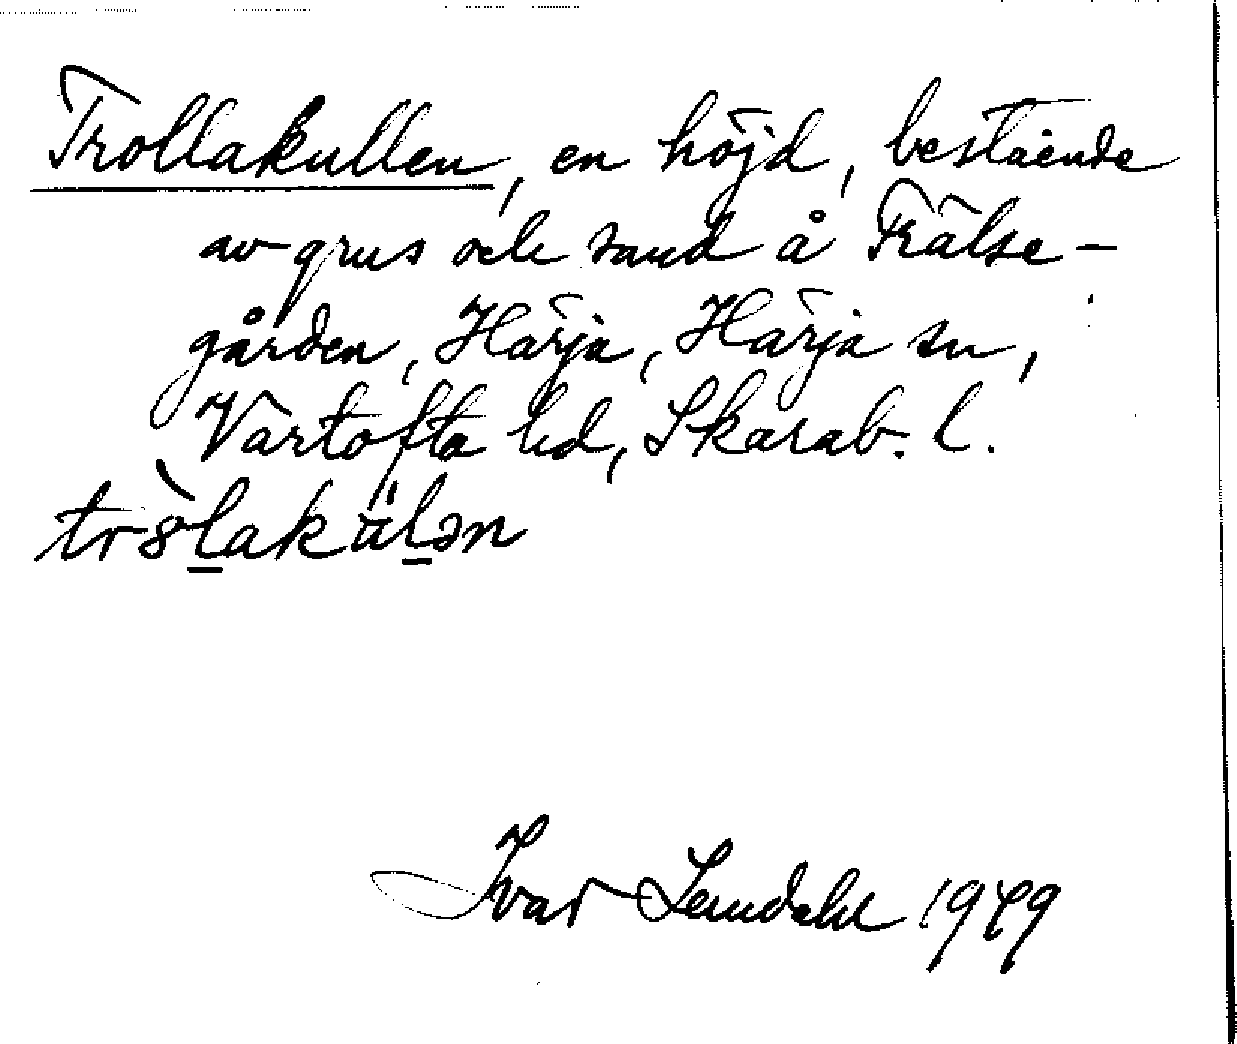 Trollakullen, en höjd, bestående
av grus och sand å Frälse-
gården, Härja, Härja sn,
Vartofta hd, Skarab. l.
tr8̀lakälən
Ivar Lundahl 1949